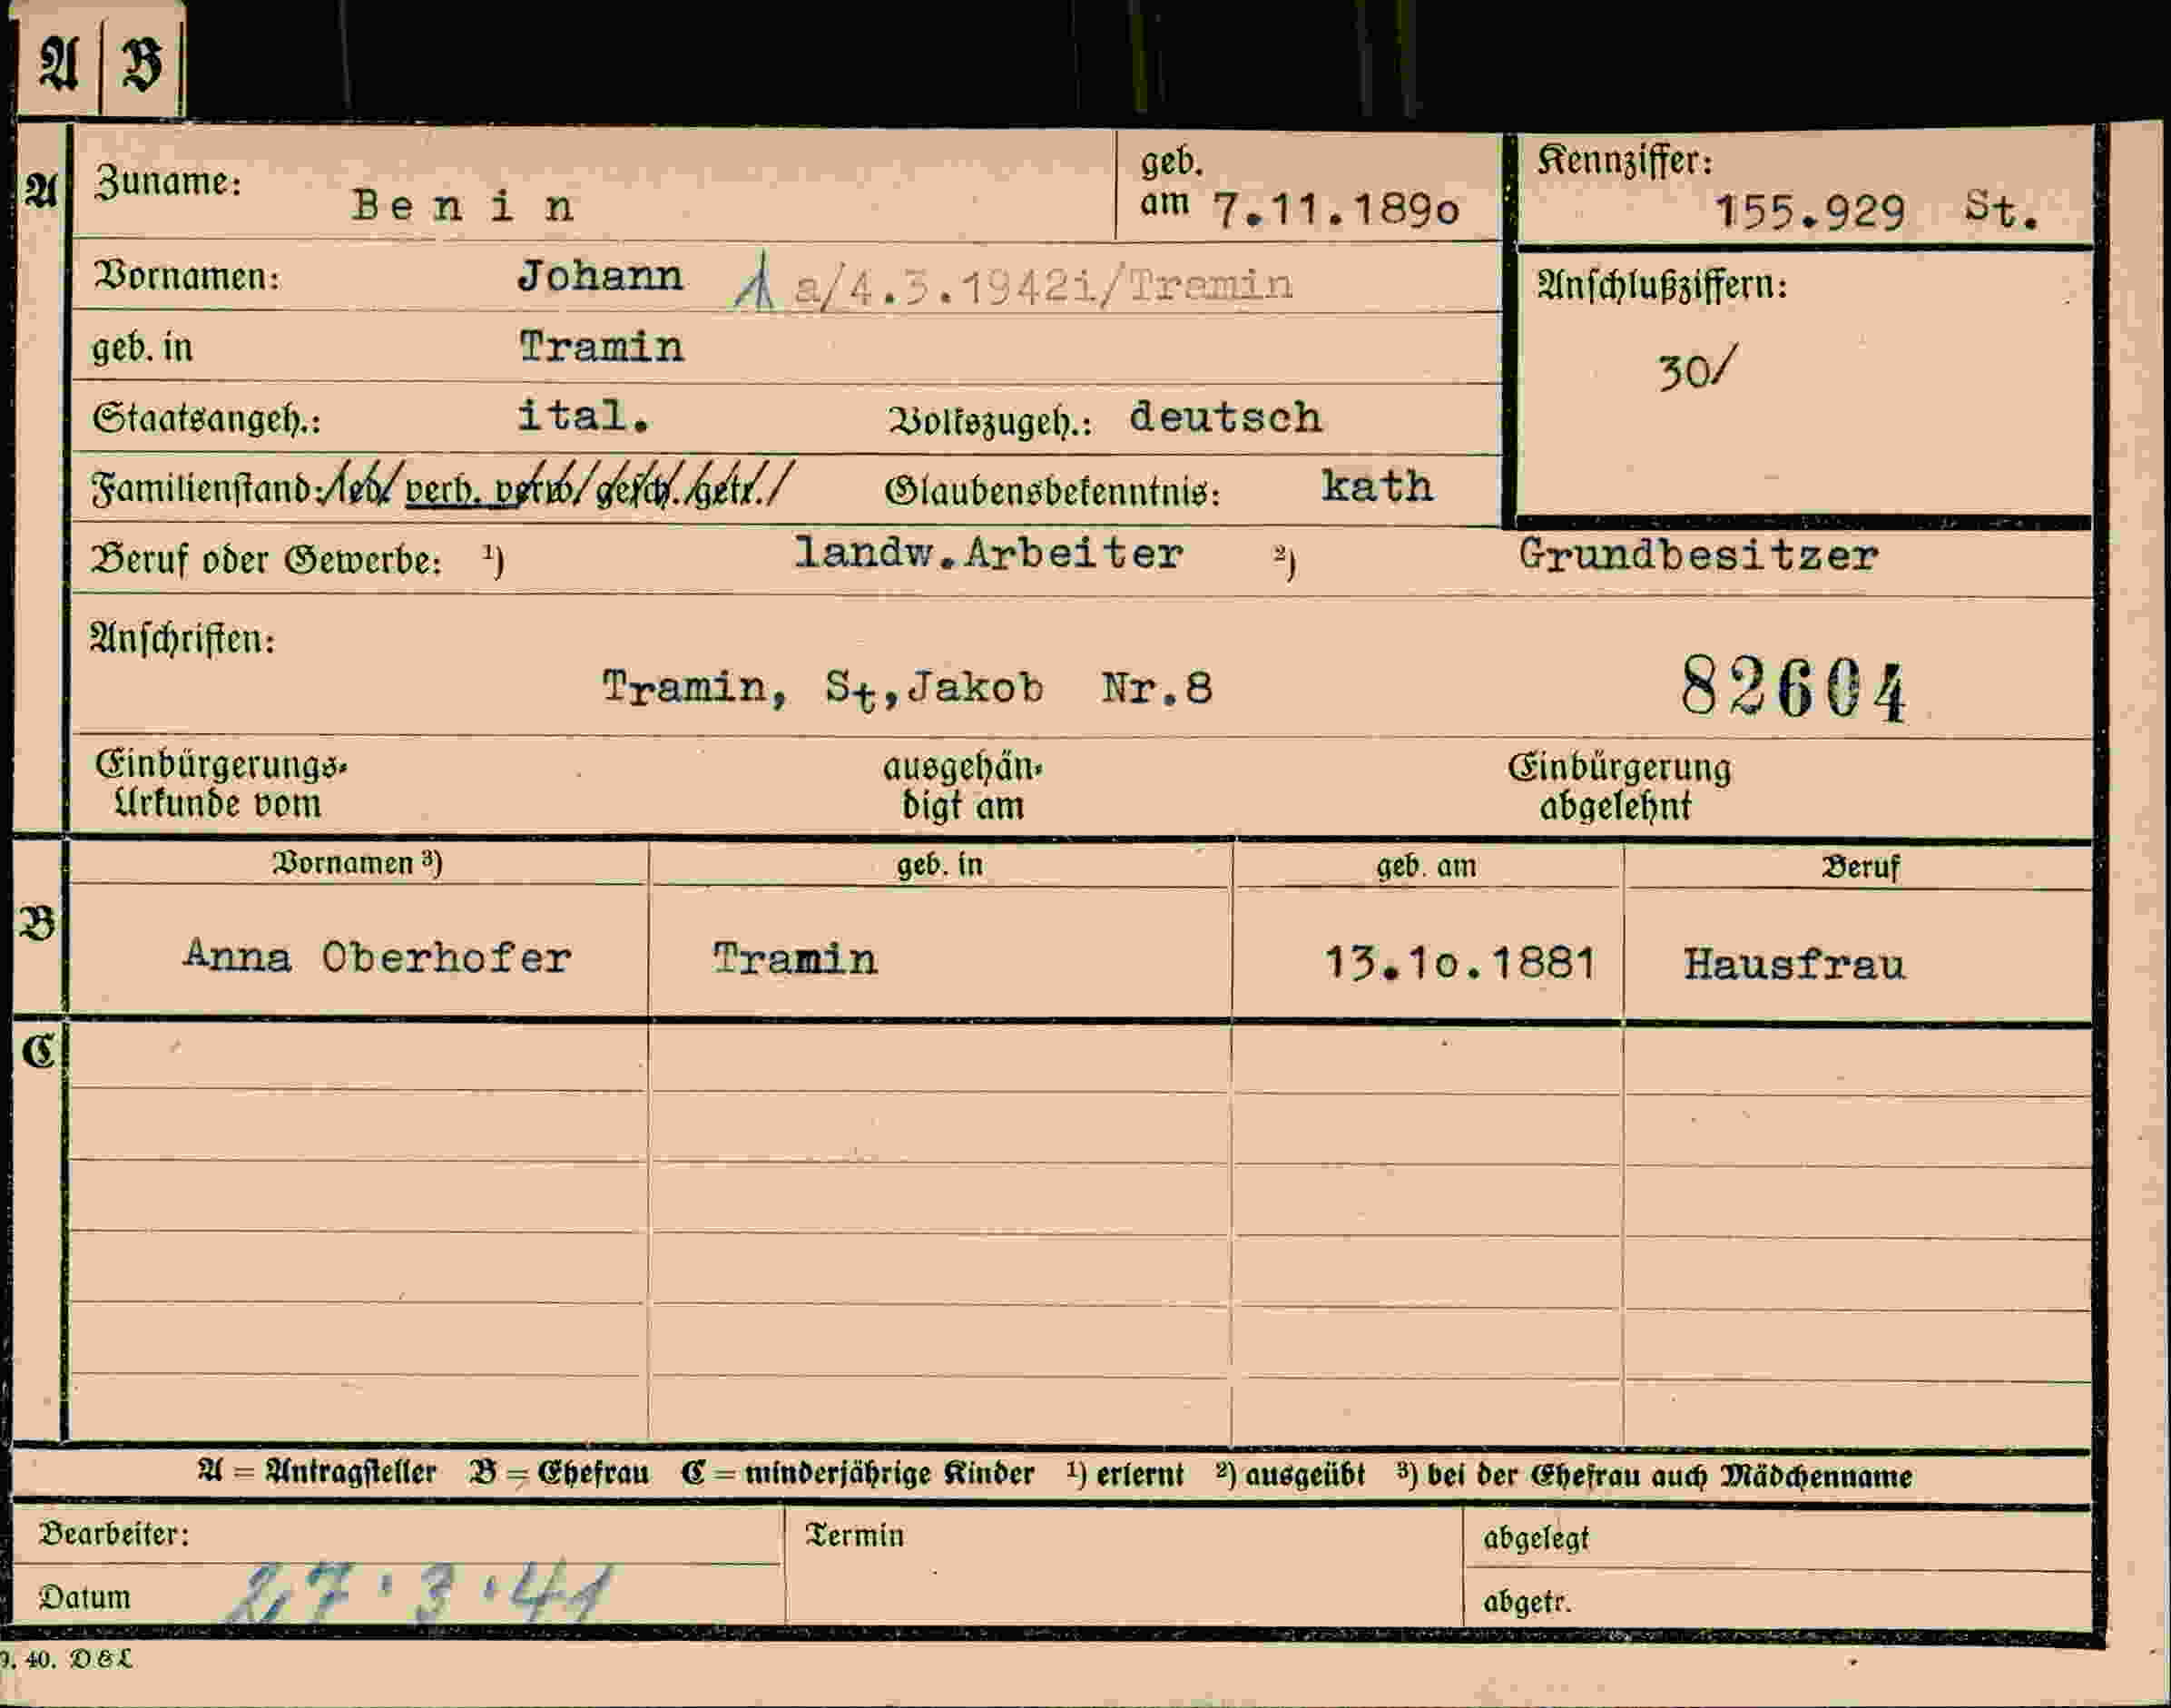 A B
A
Zuname: Benin geb. am 7.11.189o Kennziffer: 155.929 St.
Vornamen: Johann a/4.3.1942i/Tramin Anschlußziffern:
30/
geb. in Tramin
Staatsangeh.: ital. Volkszugeh.: deutsch
Familienstand: led. verh. verw. gesch. getr. Glaubensbekenntnis: kath
Beruf oder Gewerbe: ¹) landw.Arbeiter ²) Grundbesitzer
Anschriften:
Tramin, St,Jakob Nr.8 82604
Einbürgerungs- Urkunde vom ausgehän- digt am Einbürgerung abgelehnt
Vornamen ³) geb. in geb. am Beruf
B
Anna Oberhofer Tramin 13.1o.1881 Hausfrau
C
A = Antragsteller B = Ehefrau C = minderjährige Kinder ¹) erlernt ²) ausgeübt ³) bei der Ehefrau auch Mädchenname
Bearbeiter: Termin abgelegt
Datum 27.3.41 abgetr.
9. 40. D&L